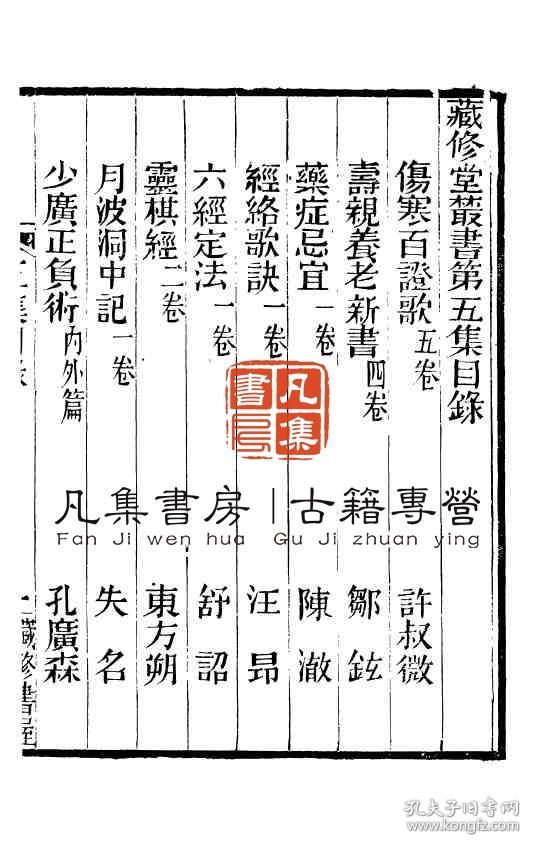 藏修堂叢書第五集目錄
傷寒百證歌 五卷 許叔微
壽親養老新書 四卷 鄒鉉
藥症忌宜 一卷 陳澈
經絡歌訣 一卷 汪昂
六經定法 一卷 舒詔
靈棋經 二卷 東方朔
月波洞中記 一卷 失名
少廣正負術 內外篇 孔廣森
凡集書房
凡集書房|古籍專營
Fan Ji wen hua Gu Ji zhuan ying
孔夫子旧书网
www.kongfz.com